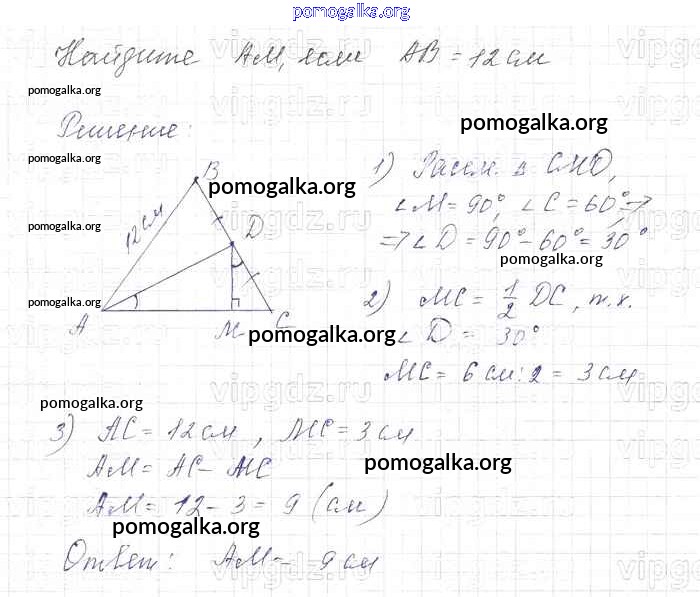 pomogalka.org
Найдите АМ, если АВ = 12 см
pomogalka.org
Решение:
pomogalka.org
pomogalka.org
В
12 см
D
А
М
С
pomogalka.org
pomogalka.org
pomogalka.org
pomogalka.org
1) Рассм. △ CMD,
∠M = 90°, ∠C = 60° ⇒
⇒ ∠D = 90° – 60° = 30°
pomogalka.org
2) MC = 1/2 DC, т.к.
∠D = 30°
MC = 6 см : 2 = 3 см
pomogalka.org
3) АС = 12 см, МС = 3 см
АМ = АС – МС
pomogalka.org
АМ = 12 – 3 = 9 (см)
pomogalka.org
Ответ: АМ – 9 см
vipgdz.ru